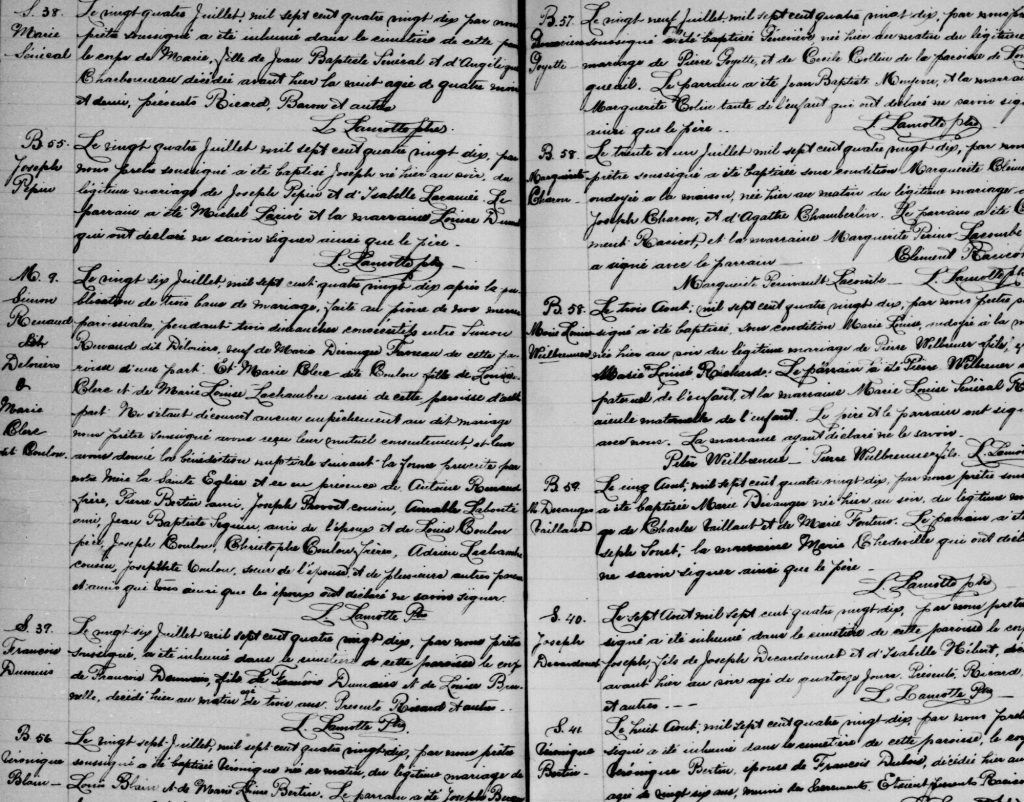 S. 38.
Marie
Sénécal
Le vingt quatre Juillet mil sept cent quatre vingt dix par nous
prêtre soussigné a été inhumé dans le cimetière de cette
le corps de Marie, fille de Jean Baptiste Sénécal et d'Angélique
Charbonneau décédée avant hier la nuit agée de quatre mois
et demi, présents Ricard, Baron et autres
L. Lamotte ptre.
B. 55.
Joseph
Pepin
Le vingt quatre Juillet mil sept cent quatre vingt dix, par
nous prêtre soussigné a été baptisé Joseph né hier au soir, du
légitime mariage de Joseph Pepin et d'Isabelle Laramée Le
parrain a été Michel Larivé et la marraine Louise
qui ont déclaré ne savoir signer aussi que le père.
L. Lamotte ptre
M. 9.
Simon
Renaud
dit
Deloriers
&
Marie
Clerc
dit Coulon.
Le vingt six Juillet, mil sept cent quatre vingt dix après la pu-
blication de trois bans de mariage, faite au prone de nos messes
paroissiales, pendant trois dimanches consécutifs entre Simon
Renaud dit Deloriers, veuf de Marie Desanges de cette pa-
roisse d'une part. Et Marie Clerc dit Coulon fille de Louis
Clerc et de Marie Louise Lachambre aussi de cette paroisse d'autre
part. Ne s'étant découvert aucun empêchement au dit mariage
nous prêtre soussigné avons reçu leur mutuel consentement, et leur
avons donné la bénédiction nuptiale suivant la forme prescrite par
notre mère la Sainte Eglise et ce en présence de Antoine Renaud
frère, Pierre Bertin ami, Joseph Provost cousin, Amable Labonté
ami, Jean Baptiste Seguin, amis de l'époux et de Louis Coulon
père, Joseph Coulon, Christophe Coulon, frères, Adrien Lachambre
cousin, Josephte Coulon, sœur de l'épouse, et de plusieurs autres parens
et amis qui tous ainsi que les époux ont déclaré ne savoir signer.
L. Lamotte Ptre
S. 39.
François
Dumuis
Le vingt six Juillet mil sept cent quatre vingt dix, par nous prêtre
soussigné, a été inhumé dans le cimetière de cette paroisse le corps
de François Dumuis, fils de François Dumuis et de Louise
décédé hier au matin agé de trois ans. Présents Ricard et autres
L. Lamotte Ptre.
B. 56.
Véronique
Blain
Le vingt sept Juillet, mil sept cent quatre vingt dix, par nous prêtre
soussigné a été baptisée Véronique née ce matin, du légitime mariage de
Louis Blain et de Marie Bertin. Le parrain a été Joseph
B. 57.
Génevieve
Goyette
Le vingt neuf Juillet, mil sept cent quatre vingt dix, par nous
soussigné a été baptisée Génevieve, née hier au matin du légitime
mariage de Pierre Goyette, et de Cecile de la paroisse de
gueuil. Le parrain a été Jean Baptiste et la marraine
Marguerite Colin tante de l'enfant qui ont déclaré ne savoir
ainsi que le père.
L. Lamotte ptre
B. 58.
Marguerite
Charon
Le trente et un Juillet mil sept cent quatre vingt dix, par nous
prêtre soussigné a été baptisée sous condition Marguerite
ondoyée à la maison, née hier au matin du légitime mariage
Joseph Charon, et d'Agathe Chamberlin. Le parrain a été
ment Racicot, et la marraine Marguerite Lacombe
a signé avec le parrain Clément Racicot
Marguerite L. Lamotte ptre
B. 58.
Marie Louise
Weilbrenner
Le trois Aout, mil sept cent quatre vingt dix, par nous prêtre
signé a été baptisée, sous condition Marie Louise, ondoyée à la
née hier au soir du légitime mariage de Pierre Weilbrenner fils,
Marie Louise Richard. Le parrain a été Pierre Weilbrenner
paternel de l'enfant, et la marraine Marie Louise Sénécal
aieule maternelle de l'enfant. Le père et le parrain ont
avec nous. La marraine ayant déclaré ne le savoir.
Peter Weilbrenner Pierre Weilbrenner fils. L. Lamotte
B. 59.
M. Desanges
Vaillaud
Le cinq Aout, mil sept cent quatre vingt dix, par nous prêtre
a été baptisée Marie Desanges née hier au soir, du légitime
ge de Charles Vaillant et de Marie Le parrain, a été
seph la marraine Marie qui ont
ne savoir signer ainsi que le père.
L. Lamotte ptre
S. 40.
Joseph
Decardonnet
Le sept Aout mil sept cent quatre vingt dix, par nous prêtre
signé a été inhumé dans le cimetière de cette paroisse le corps
Joseph, fils de Joseph Decardonnet et d'Isabelle Hébert,
avant hier au soir agé de quatorze jours. Présents, Ricard,
et autres
L. Lamotte Ptre
S. 41.
Véronique
Bertin
Le huit Aout, mil sept cent quatre vingt dix, par nous
signé a été inhumé dans le cimetière de cette paroisse, le corps
Véronique Bertin, épouse de François Dubuc, décédée hier au
agée de vingt six ans, munie des Sacrements, Etoient presents